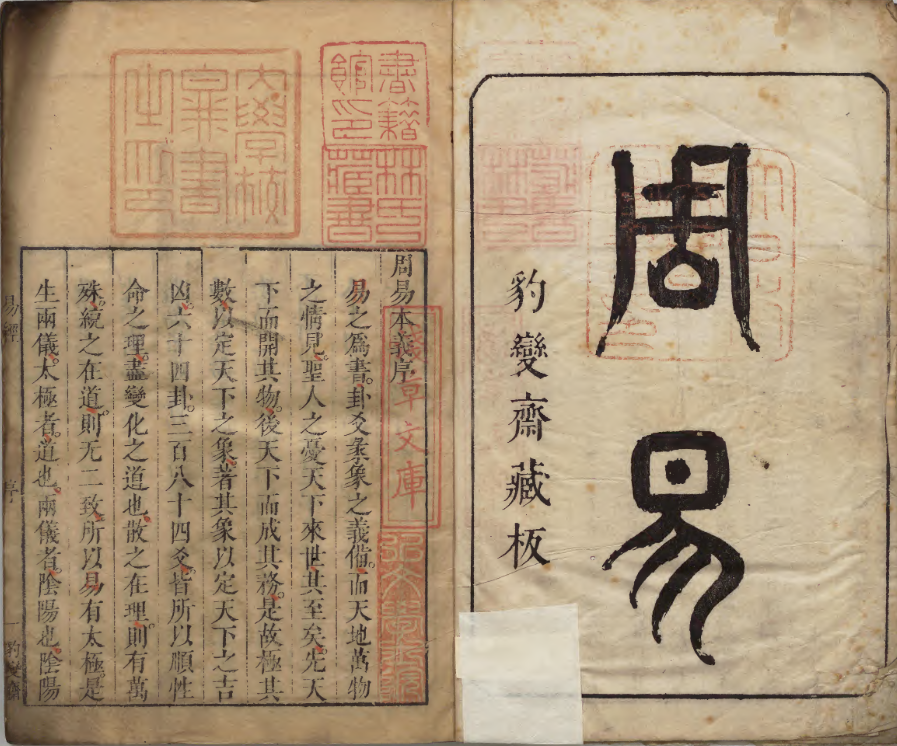 周易
豹變齋藏板
周易本義序
易之爲書卦爻彖象之義備而天地萬物
之情見聖人之憂天下來世其至矣先天
下而開其物後天下而成其務是故極其
數以定天下之象著其象以定天下之吉
凶六十四卦三百八十四爻皆所以順性
命之理盡變化之道也散之在理則有萬
殊統之在道則无二致所以易有太極是
生兩儀太極者道也兩儀者陰陽也陰陽
易經
序
一
大學校
棐書
之印
書籍
館印
林氏
藏書
草文庫